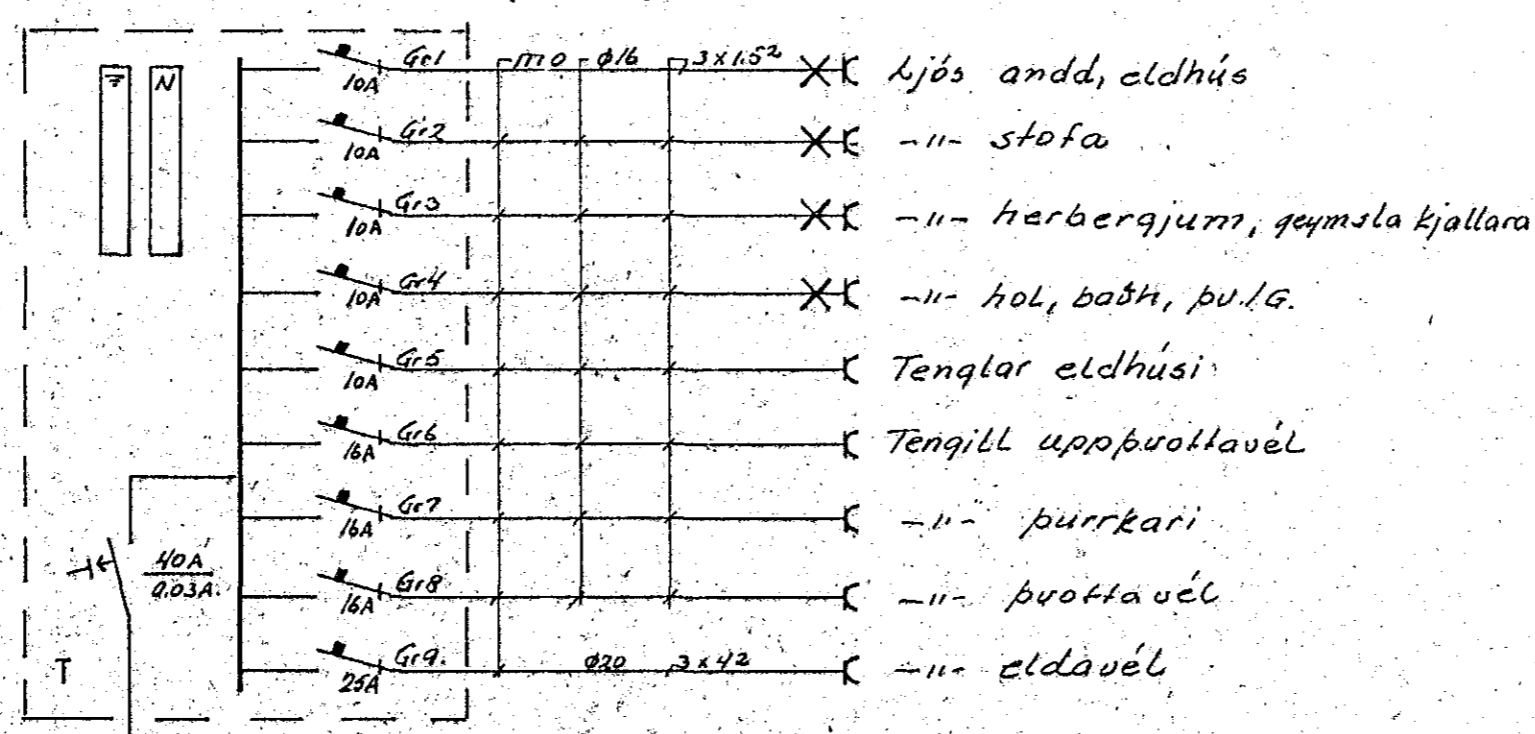 N
Gr1 10A m0 φ16 3x1.5² Ljós andd, eldhús
Gr2 10A -"- stofa
Gr3 10A -"- herbergjum, geymsla kjallara
Gr4 10A -"- hol, baðh, þv./G.
Gr5 10A Tenglar eldhúsi
Gr6 16A Tengill uppþvottavél
Gr7 16A -"- þurrkari
Gr8 16A -"- þvottavél
40A
0.03A.
Gr9. 25A φ20 3x4² -"- eldavél
T